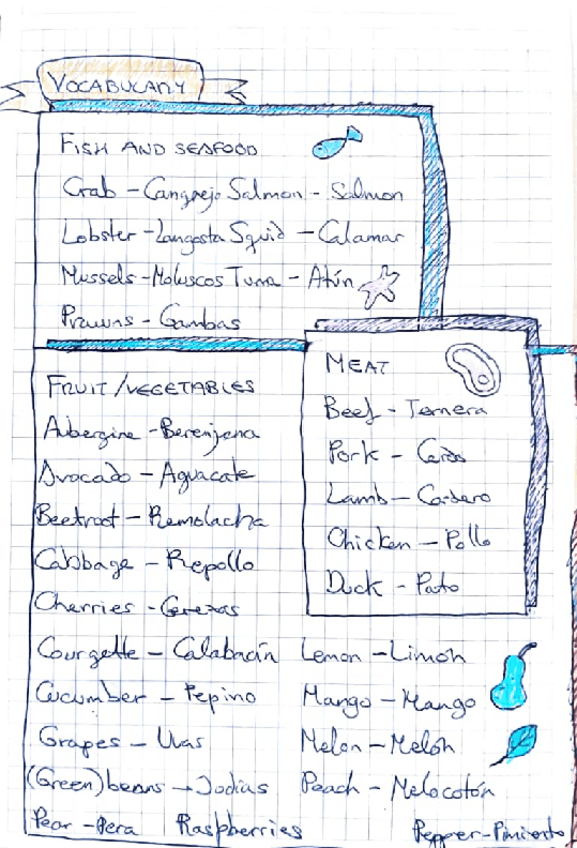 VOCABULARY
FISH AND SEAFOOD
Crab - Cangrejo Salmon - Salmon
Lobster - Langosta Squid - Calamar
Mussels - Moluscos Tuna - Atún
Prawns - Gambas
MEAT
Beef - Ternera
Pork - Cerdo
Lamb - Cordero
Chicken - Pollo
Duck - Pato
FRUIT/VEGETABLES
Aubergine - Berenjena
Avocado - Aguacate
Beetroot - Remolacha
Cabbage - Repollo
Cherries - Cerezas
Courgette - Calabacín Lemon - Limón
Cucumber - Pepino Mango - Mango
Grapes - Uvas Melon - Melón
(Green) beans → Judías Peach - Melocotón
Pear - Pera Raspberries Pepper - Pimiento